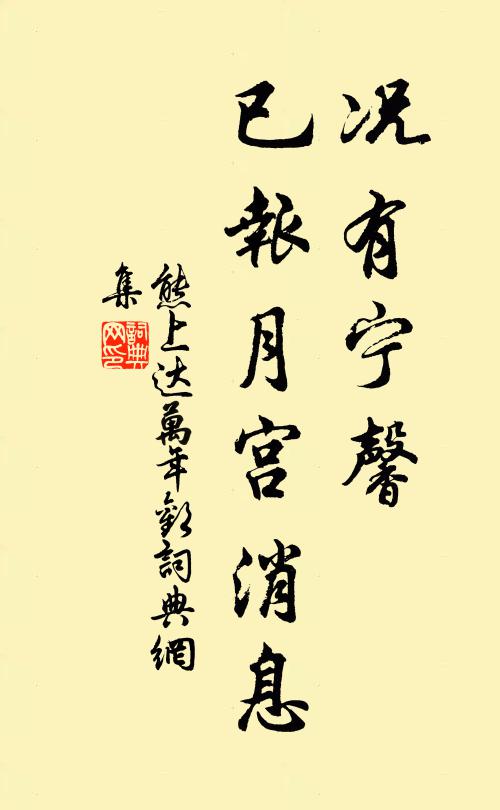 况有宁馨
已報月宫消息
熊上达萬年歡詞典網
集
詞典
网印